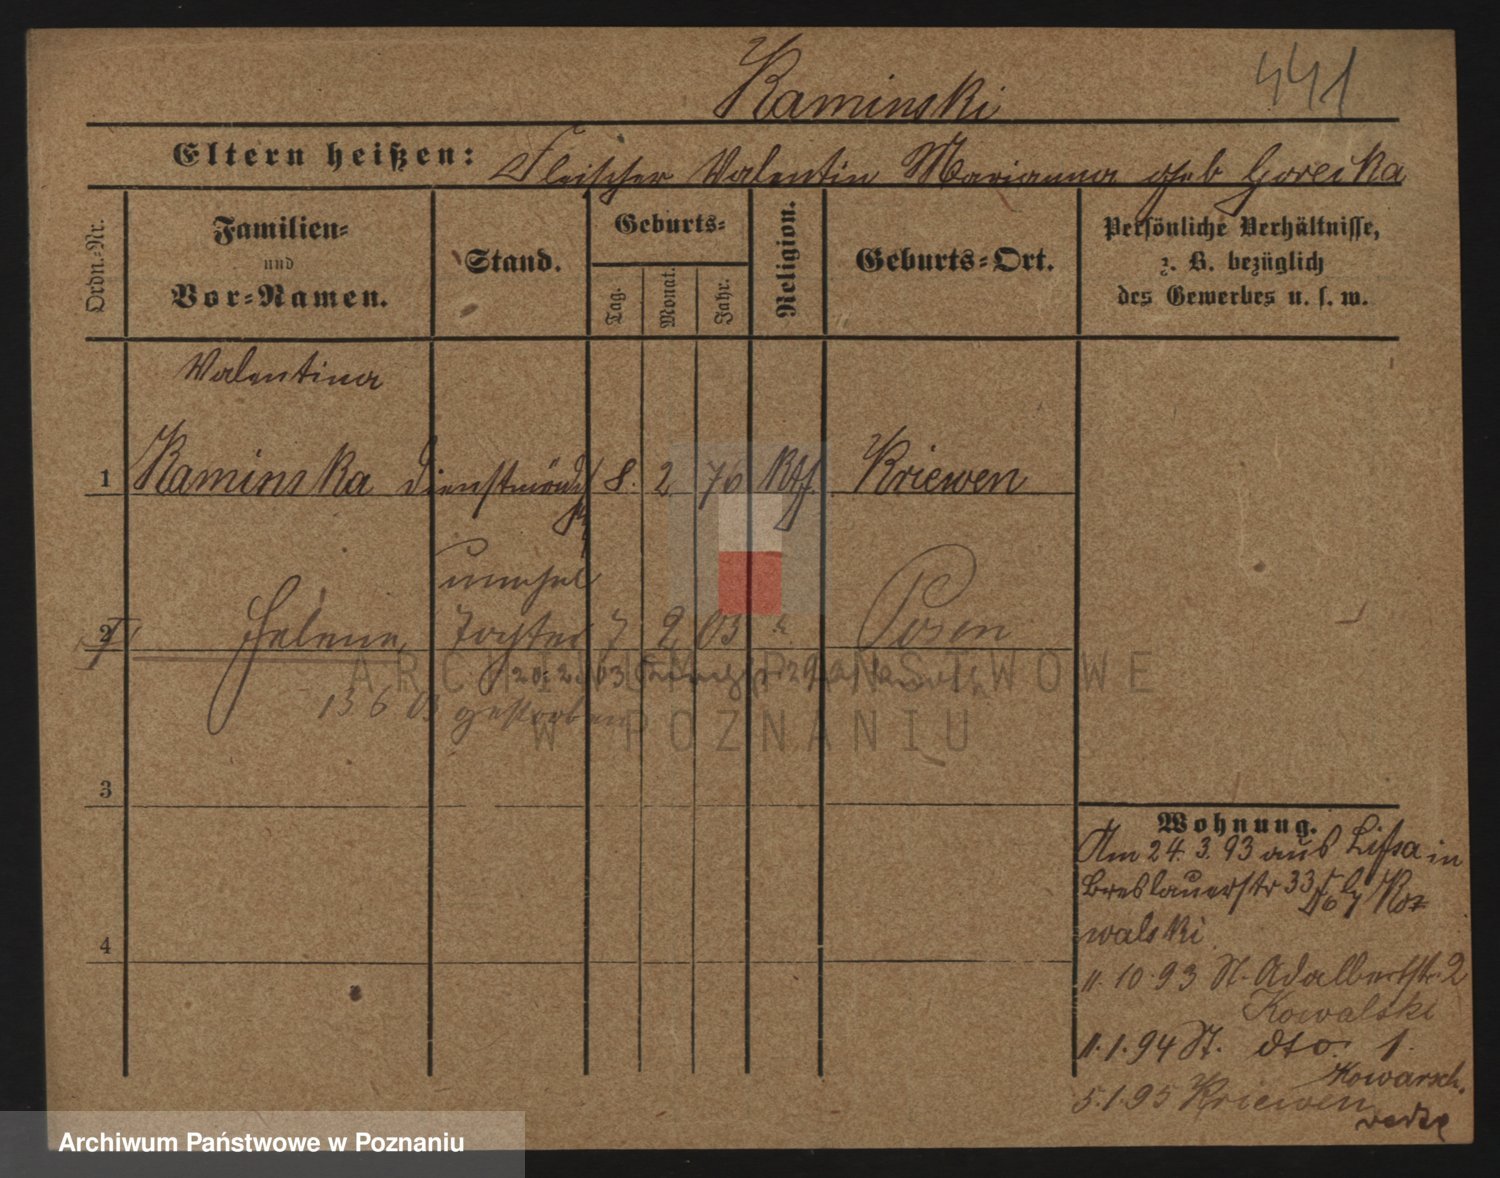 Kaminski
441
Eltern heißen: Fleischer Valentin Marianna geb Gorecka
Ordn.-Nr.
Familien-
und
Vor-Namen.
Stand.
Geburts-
Tag.
Monat.
Jahr.
Religion.
Geburts-Ort.
Persönliche Verhältnisse,
z. B. bezüglich
des Gewerbes u. s. w.
Valentina
1 Kaminska Dienstmädch 8. 2 76 Kth. Kriewen
unehel
2 Helene, Tochter 7 2 03 Posen
20. 2. 03
13 6 03 gestorben
3
4
Wohnung.
Am 24. 3. 93 aus Lissa in
Breslauerstr 33 Ko-
walski
11. 10. 93 St. Adalbertstr. 2
Kowalski
11. 1. 94 St. dto. 1.
Kowarsch.
5. 1. 95 Kriewen
ARCHIWUM PAŃSTWOWE
W POZNANIU
Archiwum Państwowe w Poznaniu